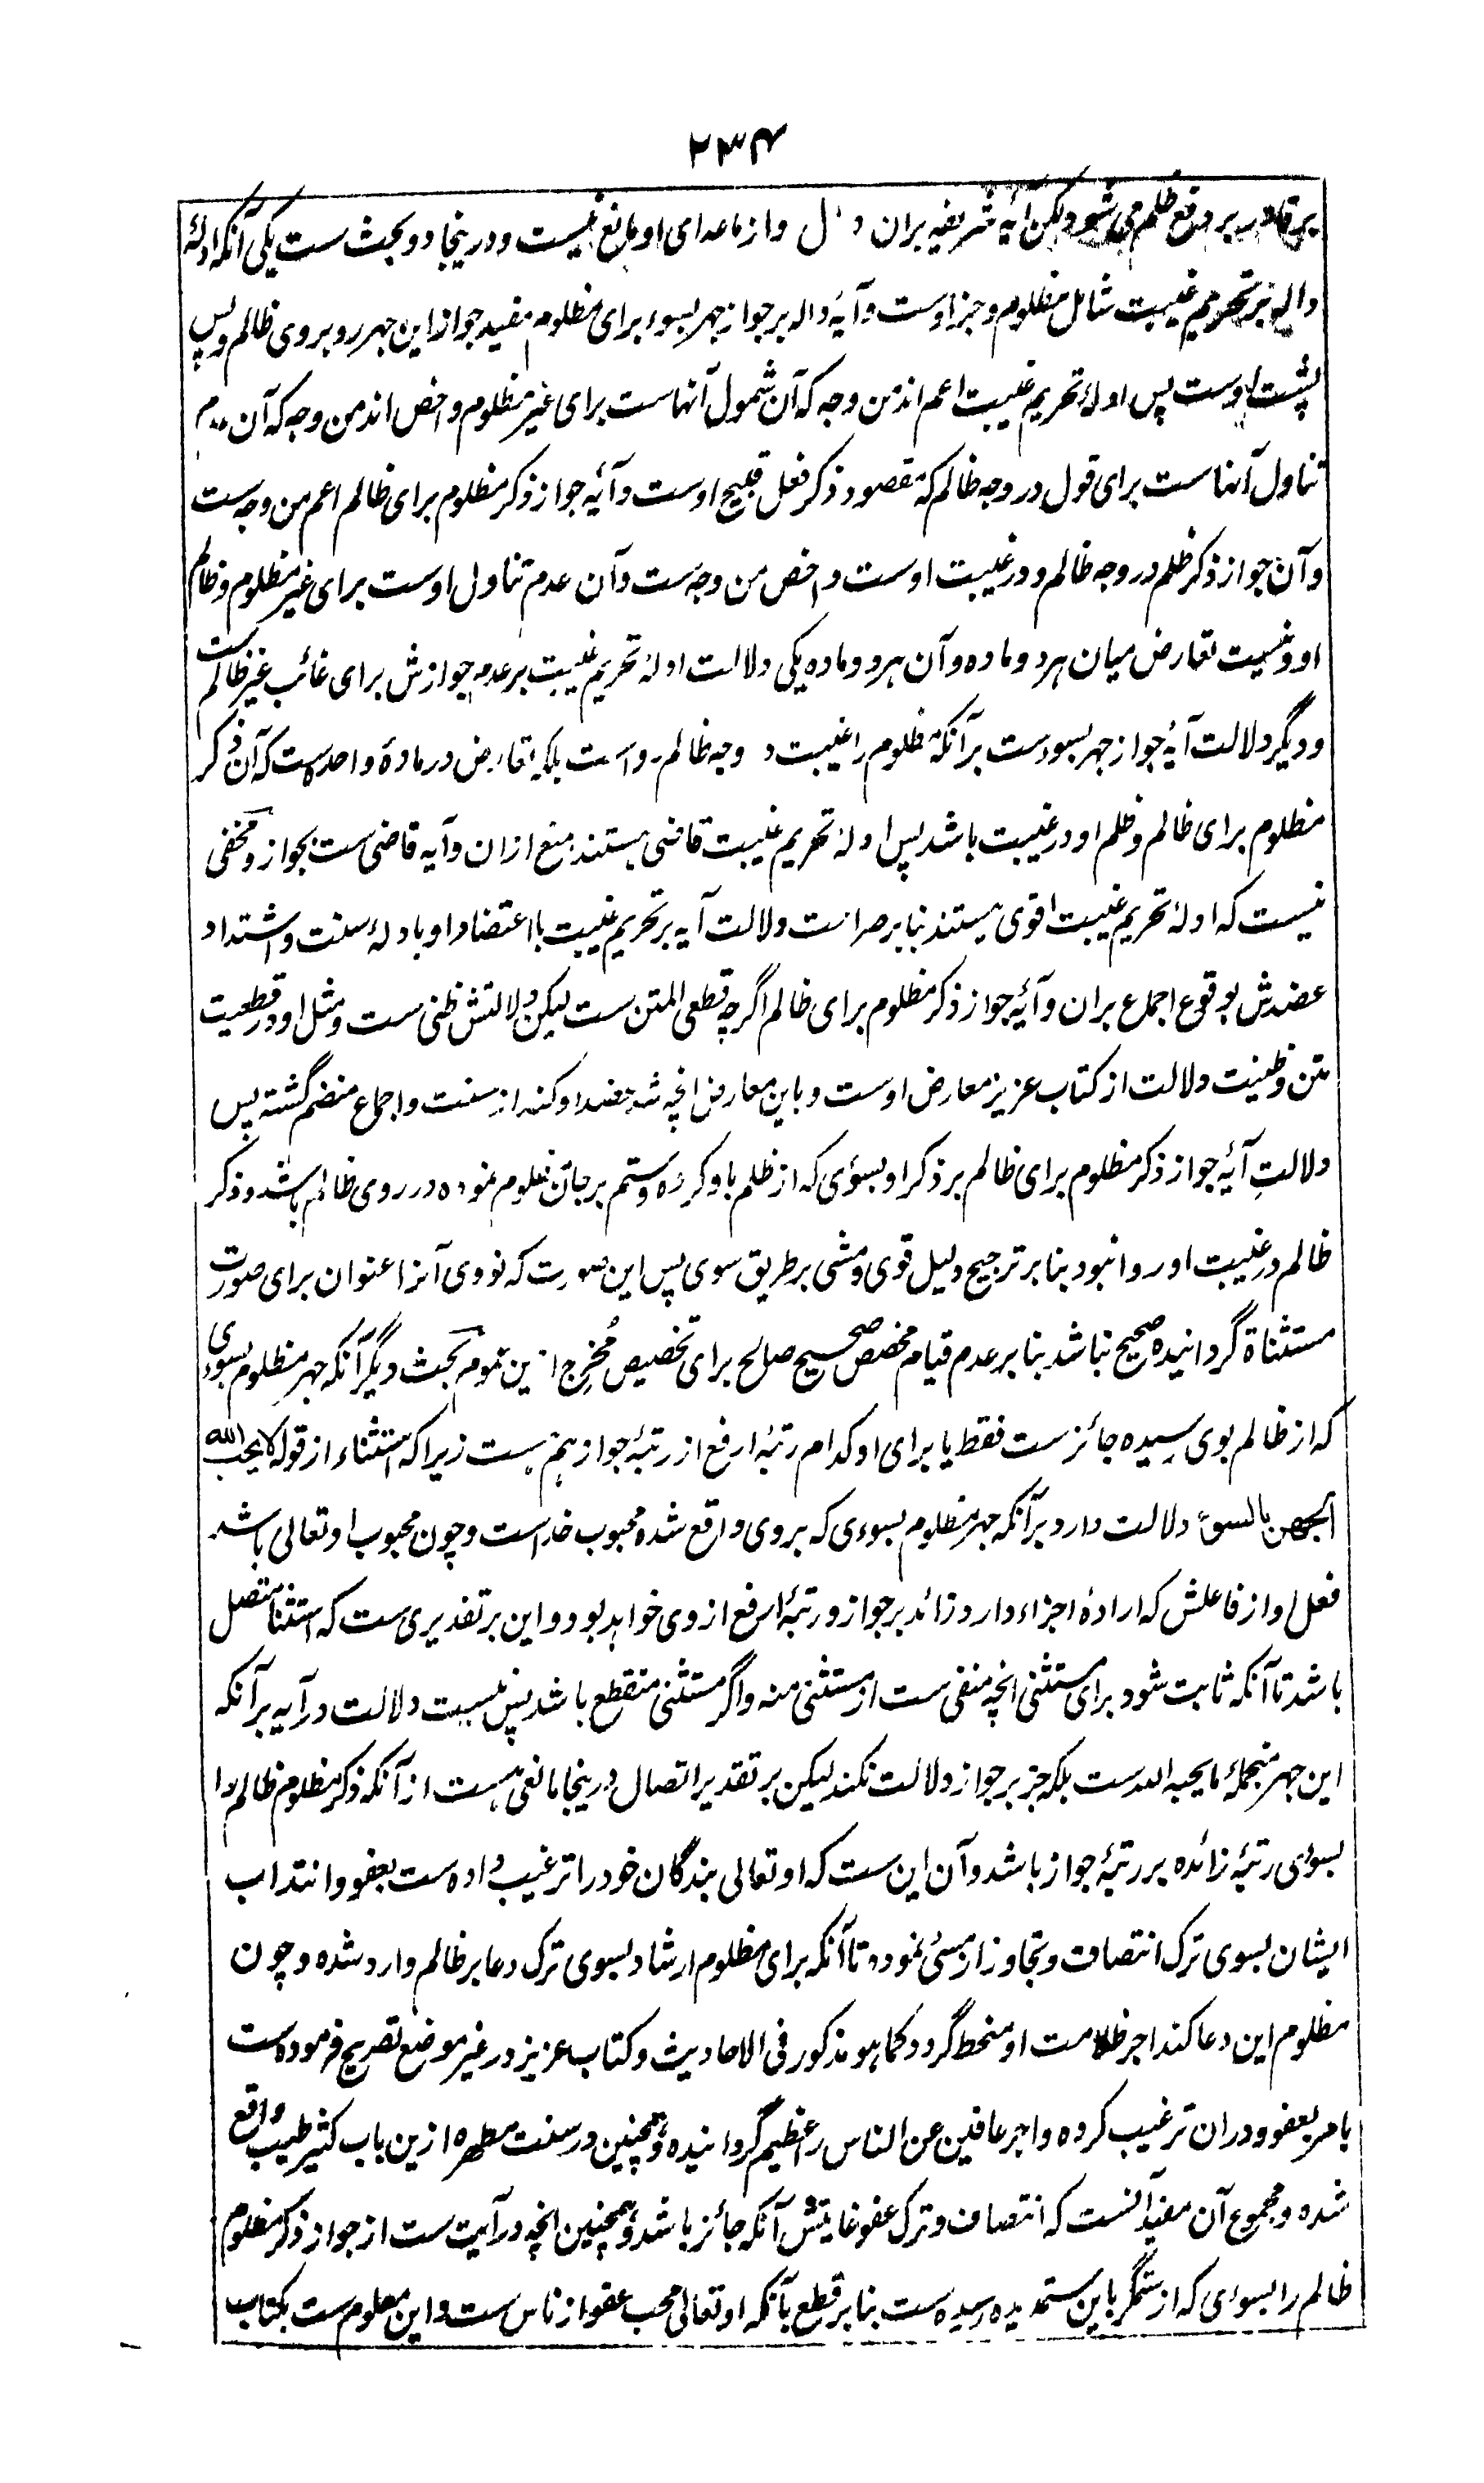 ۲۳۴
بر قادر بر دفع ظلم می شود لیکن آیهٔ شریفه بران دال و از ماعدای او مانع نیست و درینجا دو بحث ست یکی آنکه ادلهٔ
داله بر تحریم غیبت شامل مظلوم و جز اوست و آیهٔ داله بر جواز جهر بسوء برای مظلوم مفید جواز این جهر روبروی ظالم و پس
پشت اوست پس ادلهٔ تحریم غیبت اعم اند من وجه که آن شمول آنهاست برای غیر مظلوم و اخص اند من وجه که آن عدم
تناول آنهاست برای قول در وجه ظالم که مقصود ذکر فعل قبیح اوست و آیهٔ جواز ذکر مظلوم برای ظالم اعم من وجه ست
و آن جواز ذکر ظلم در وجه ظالم و در غیبت اوست و اخص من وجه ست و آن عدم تناول اوست برای غیر مظلوم و ظالم
او و نیست تعارض میان هر دو ماده و آن هر دو ماده یکی دلالت ادلهٔ تحریم غیبت بر عدم جوازش برای غائب غیر ظالم ست
و دیگر دلالت آیهٔ جواز جهر بسوء ست بر آنکه مظلوم را غیبت در وجه ظالم رواست بلکه تعارض در مادهٔ واحده ست که آن ذکر
مظلوم برای ظالم و ظلم او در غیبت باشد پس ادلهٔ تحریم غیبت قاضی هستند بمنع ازان و آیه قاضی ست بجواز و مخفی
نیست که ادلهٔ تحریم غیبت اقوی هستند بنا بر صراحت دلالت آیه بر تحریم غیبت با اعتضاد او بادلهٔ سنت و اشتداد
عضدش بوقوع اجماع بران و آیهٔ جواز ذکر مظلوم برای ظالم اگرچه قطعی المتن ست لیکن دلالتش ظنی ست و مثل او در قطعیت
متن و ظنیت دلالت از کتاب عزیز معارض اوست و باین معارض انچه شد عضد او کند از سنت و اجماع منضم گشته پس
دلالتِ آیهٔ جواز ذکر مظلوم برای ظالم بر ذکر او بسوئی که از ظلم باو کرده و ستم بر جان مظلوم نموده در روی ظالم باشد و ذکر
ظالم در غیبت او روا نبود بنا بر ترجیح دلیل قوی و مشی بر طریق سوی پس این صورت که نووی آنرا عنوان برای صورت
مستثناة گردانیده صحیح نباشد بنا بر عدم قیام مخصص صحیح صالح برای تخصیص مُخرِج ازین عموم بحث دیگر آنکه جهر مظلوم بسوئی
که از ظالم بوی رسیده جائز ست فقط یا برای او کدام رتبهٔ ارفع از رتبهٔ جواز هم هست زیرا که استثناء از قوله لا یحب الله
الجهر بالسوء دلالت دارد بر آنکه جهر مظلوم بسوءی که بر وی واقع شده محبوب خداست و چون محبوب او تعالی باشد
فعل او از فاعلش که ارادهٔ اجزاء دارد زائد بر جواز و رتبهٔ ارفع از وی خواهد بود و این بر تقدیری ست که استثنا متصل
باشد تا آنکه ثابت شود برای مستثنی انچه منفی ست از مستثنی منه و اگر مستثنی منقطع باشد پس نیست دلالت در آیه بر آنکه
این جهر منجملهٔ ما یحبه الله ست بلکه جز بر جواز دلالت نکند لیکن بر تقدیر اتصال درینجا مانعی هست از آنکه ذکر مظلوم ظالم را
بسوئی رتبهٔ زائده بر رتبهٔ جواز باشد و آن این ست که او تعالی بندگان خود را ترغیب داده ست بعفو و انتداب
ایشان بسوی ترک انتصاف و تجاوز از مسئ نموده تا آنکه برای مظلوم ارشاد بسوی ترک دعا بر ظالم وارد شده و چون
مظلوم این دعا کند اجر ظلامت او منحط گردد کما هو مذکور فی الاحادیث و کتاب عزیز در غیر موضع تصریح فرموده ست
بامر بعفو و دران ترغیب کرده و اجر عافین عن الناس را عظیم گردانیده و همچنین در سنت مطهره ازین باب کثیر طیب واقع
شده و مجموع آن مفید آنست که انتصاف و ترک عفو غایتش آنکه جائز باشد و همچنین انچه در آیت ست از جواز ذکر مظلوم
ظالم را بسوئی که از ستمگر باین ستمدیده رسیده ست بنا بر قطع بآنکه او تعالی محب عفو از ناس ست و این معلوم ست بکتاب